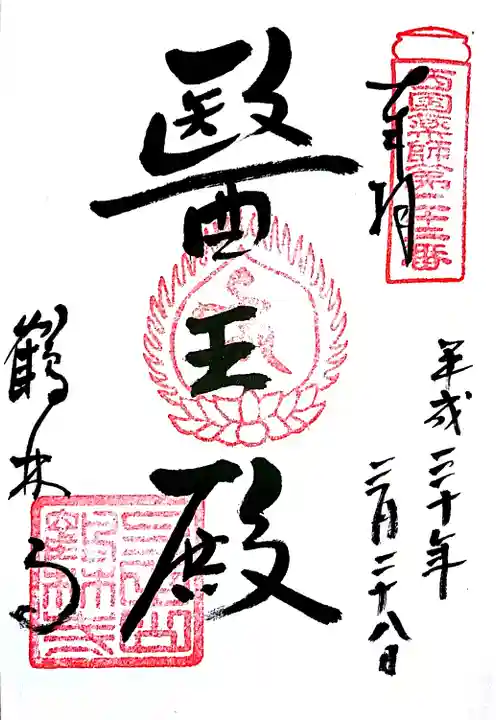 西國薬師第二十二番
奉拝
平成三十年
三月二十八日
醫王殿
鶴林寺